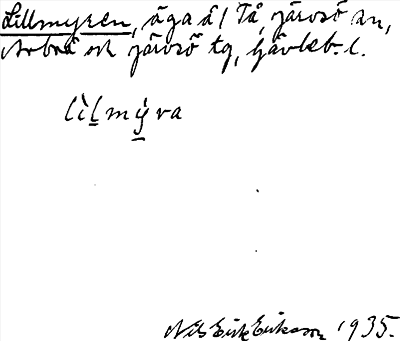 Lillmyren, äga å / Tå, Järvsö sn,
Arbrå och Järvsö tg, Gävleb. l.
lìl mỳra
Nils Erik Eriksson 1935.